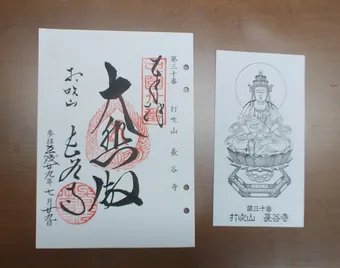 第三十番 打吹山 長谷寺
奉拝
大悲殿
打吹山
長谷寺
平成廿九年七月廿九日
第三十番
打吹山 長谷寺